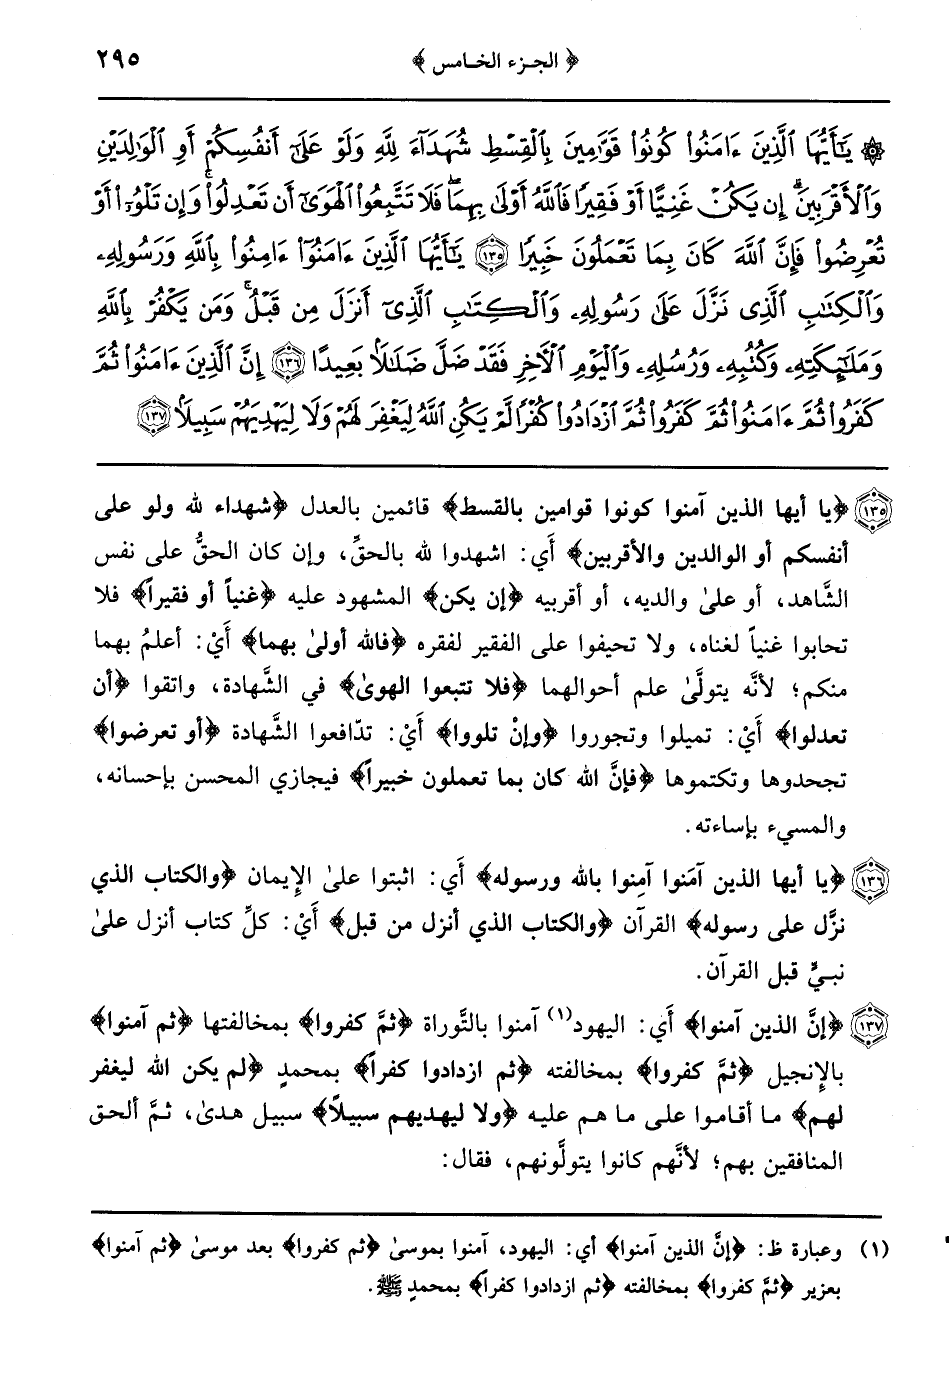 ﴿ الجـزء الخـامس ﴾ ٢٩٥
۞ يَٰٓأَيُّهَا ٱلَّذِينَ ءَامَنُوا۟ كُونُوا۟ قَوَّٰمِينَ بِٱلْقِسْطِ شُهَدَآءَ لِلَّهِ وَلَوْ عَلَىٰٓ أَنفُسِكُمْ أَوِ ٱلْوَٰلِدَيْنِ
وَٱلْأَقْرَبِينَ ۚ إِن يَكُنْ غَنِيًّا أَوْ فَقِيرًا فَٱللَّهُ أَوْلَىٰ بِهِمَا ۖ فَلَا تَتَّبِعُوا۟ ٱلْهَوَىٰٓ أَن تَعْدِلُوا۟ ۚ وَإِن تَلْوُۥٓا۟ أَوْ
تُعْرِضُوا۟ فَإِنَّ ٱللَّهَ كَانَ بِمَا تَعْمَلُونَ خَبِيرًا ١٣٥ يَٰٓأَيُّهَا ٱلَّذِينَ ءَامَنُوٓا۟ ءَامِنُوا۟ بِٱللَّهِ وَرَسُولِهِۦ
وَٱلْكِتَٰبِ ٱلَّذِى نَزَّلَ عَلَىٰ رَسُولِهِۦ وَٱلْكِتَٰبِ ٱلَّذِىٓ أَنزَلَ مِن قَبْلُ ۚ وَمَن يَكْفُرْ بِٱللَّهِ
وَمَلَٰٓئِكَتِهِۦ وَكُتُبِهِۦ وَرُسُلِهِۦ وَٱلْيَوْمِ ٱلْءَاخِرِ فَقَدْ ضَلَّ ضَلَٰلًۢا بَعِيدًا ١٣٦ إِنَّ ٱلَّذِينَ ءَامَنُوا۟ ثُمَّ
كَفَرُوا۟ ثُمَّ ءَامَنُوا۟ ثُمَّ كَفَرُوا۟ ثُمَّ ٱزْدَادُوا۟ كُفْرًا لَّمْ يَكُنِ ٱللَّهُ لِيَغْفِرَ لَهُمْ وَلَا لِيَهْدِيَهُمْ سَبِيلًۢا ١٣٧
١٣٥ ﴿يا أيها الذين آمنوا كونوا قوامين بالقسط﴾ قائمين بالعدل ﴿شهداء لله ولو على
أنفسكم أو الوالدين والأقربين﴾ أَي: اشهدوا لله بالحقِّ، وإن كان الحقُّ على نفس
الشَّاهد، أو علىٰ والديه، أو أقربيه ﴿إن يكن﴾ المشهود عليه ﴿غنياً أو فقيراً﴾ فلا
تحابوا غنياً لغناه، ولا تحيفوا على الفقير لفقره ﴿فالله أولىٰ بهما﴾ أَيْ: أعلمُ بهما
منكم؛ لأنَّه يتولَّىٰ علم أحوالهما ﴿فلا تتبعوا الهوىٰ﴾ في الشَّهادة، واتقوا ﴿أن
تعدلوا﴾ أَيْ: تميلوا وتجوروا ﴿وإنْ تلووا﴾ أَيْ: تدَّافعوا الشَّهادة ﴿أو تعرضوا﴾
تجحدوها وتكتموها ﴿فإنَّ الله كان بما تعملون خبيراً﴾ فيجازي المحسن بإحسانه،
والمسيء بإساءته.
١٣٦ ﴿يا أيها الذين آمَنوا آمِنوا بالله ورسوله﴾ أَي: اثبتوا علىٰ الإِيمان ﴿والكتاب الذي
نزَّل على رسوله﴾ القرآن ﴿والكتاب الذي أنزل من قبل﴾ أَيْ: كلِّ كتاب أنزل علىٰ
نبيٍّ قبل القرآن.
١٣٧ ﴿إنَّ الذين آمنوا﴾ أَي: اليهود(١) آمنوا بالتَّوراة ﴿ثمَّ كفروا﴾ بمخالفتها ﴿ثم آمنوا﴾
بالإِنجيل ﴿ثمَّ كفروا﴾ بمخالفته ﴿ثم ازدادوا كفراً﴾ بمحمدٍ ﴿لم يكن الله ليغفر
لهم﴾ ما أقاموا على ما هم عليه ﴿ولا ليهديهم سبيلاً﴾ سبيل هدىٰ، ثمَّ ألحق
المنافقين بهم؛ لأنَّهم كانوا يتولَّونهم، فقال:
(١) وعبارة ظ: ﴿إنَّ الذين آمنوا﴾ أي: اليهود، آمنوا بموسىٰ ﴿ثم كفروا﴾ بعد موسىٰ ﴿ثم آمنوا﴾
بعزير ﴿ثمَّ كفروا﴾ بمخالفته ﴿ثم ازدادوا كفراً﴾ بمحمدٍ ﷺ.